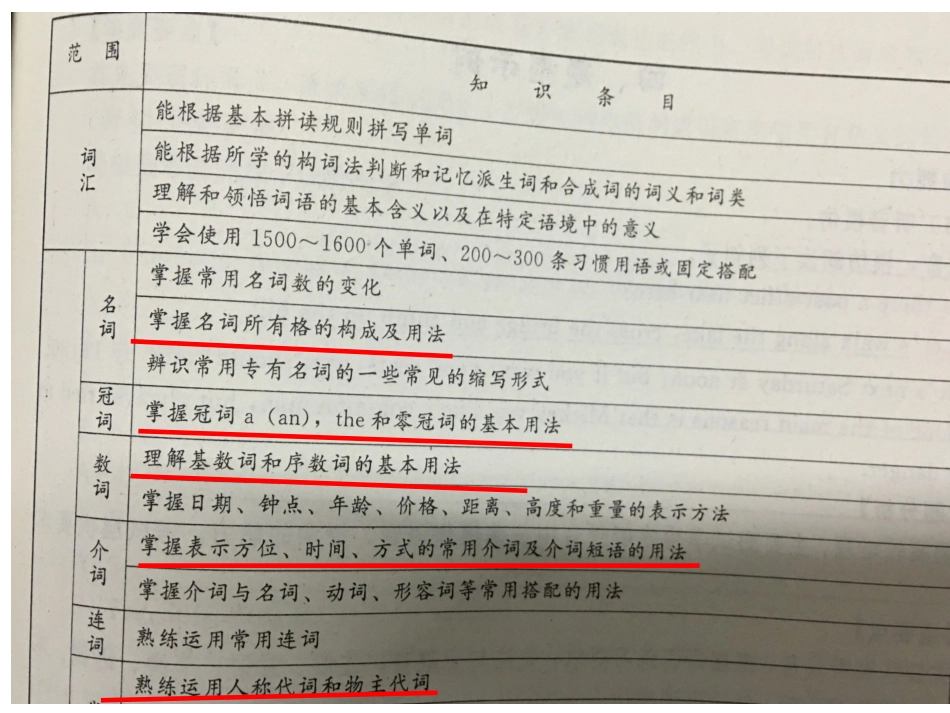 范围
知识条目
词汇
能根据基本拼读规则拼写单词
能根据所学的构词法判断和记忆派生词和合成词的词义和词类
理解和领悟词语的基本含义以及在特定语境中的意义
学会使用 1500～1600 个单词、200～300 条习惯用语或固定搭配
名词
掌握常用名词数的变化
掌握名词所有格的构成及用法
辨识常用专有名词的一些常见的缩写形式
冠词
掌握冠词 a (an), the 和零冠词的基本用法
数词
理解基数词和序数词的基本用法
掌握日期、钟点、年龄、价格、距离、高度和重量的表示方法
介词
掌握表示方位、时间、方式的常用介词及介词短语的用法
掌握介词与名词、动词、形容词等常用搭配的用法
连词
熟练运用常用连词
熟练运用人称代词和物主代词